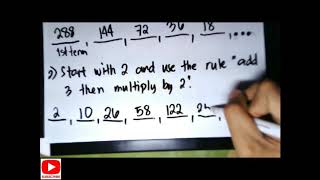 288, 144, 72, 36, 18, ...
1st term
2) Start with 2 and use the rule "add
3 then multiply by 2".
2, 10, 26, 58, 122,